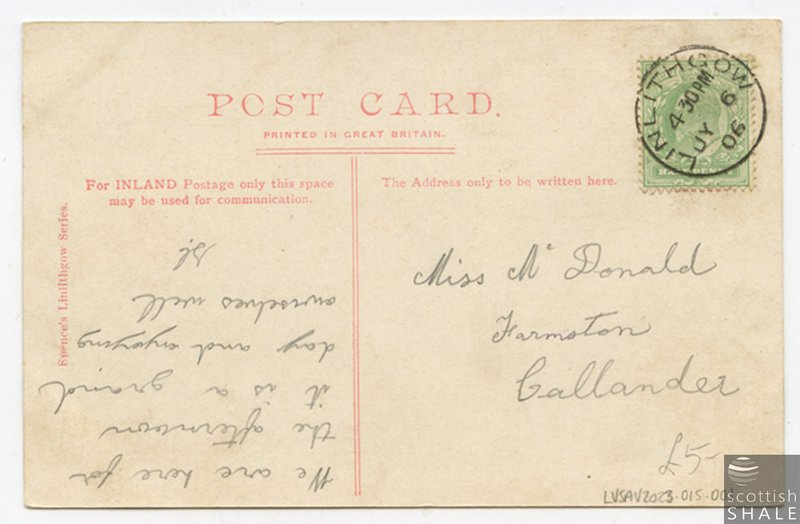 POST CARD.
PRINTED IN GREAT BRITAIN.
For INLAND Postage only this space
may be used for communication.
The Address only to be written here.
Spence's Linlithgow Series.
LINLITHGOW
4 30PM
JY 6
06
HALFPENNY
We are here for
the afternoon
it is a grand
day and enjoying
ourselves well
Miss Mc Donald
Farmston
Callander
£5-
LVSAV2023-015-00
scottish
SHALE